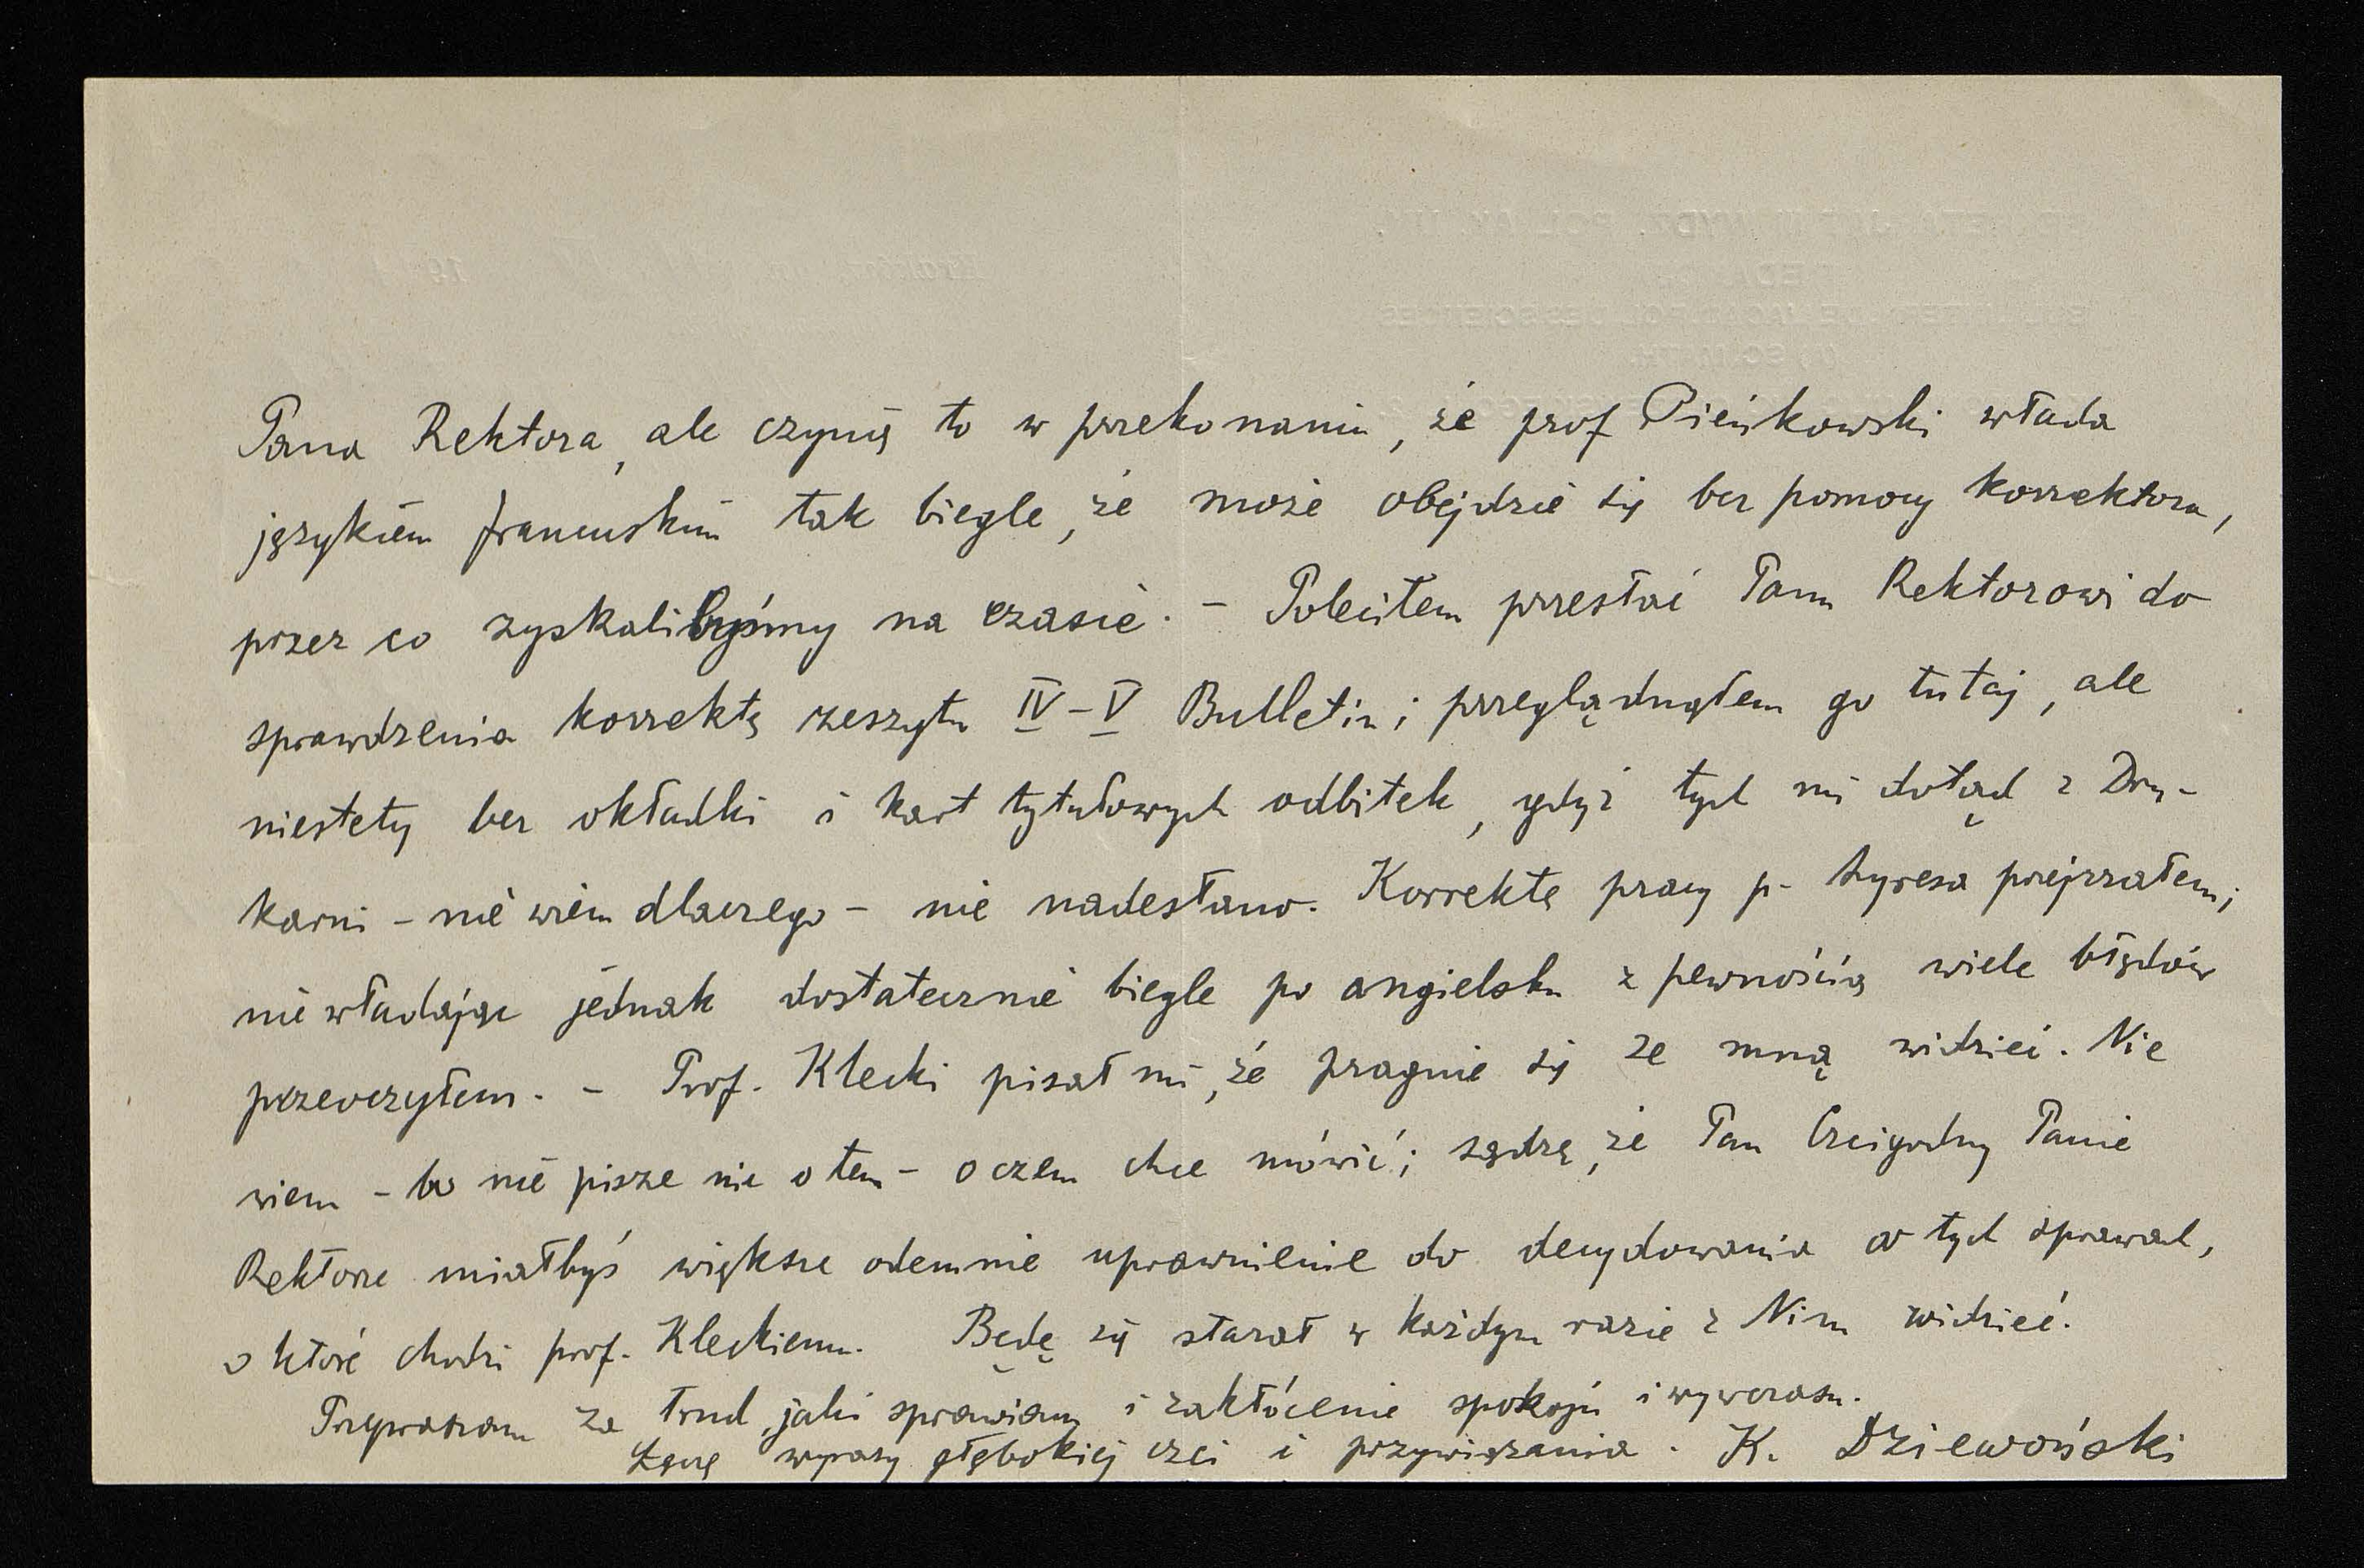 Pana Rektora, ale czynię to w przekonaniu, że prof Pieńkowski włada
językiem francuskim tak biegle, że może obejdzie się bez pomocy korrektora,
przez co zyskalibyśmy na czasie. – Poleciłem przesłać Panu Rektorowi do
sprawdzenia korrektę zeszytu IV–V Bulletin; przeglądnąłem go tutaj, ale
niestety bez okładki i kart tytułowych odbitek, gdyż tych mi dotąd z Dru-
karni – nie wiem dlaczego – nie nadesłano. Korrektę pracy p. przejrzałem;
nie władając jednak dostatecznie biegle po angielsku z pewnością wiele błędów
przeoczyłem. – Prof. Klecki pisał mi, że pragnie się ze mną widzieć. Nie
wiem – bo nie pisze nic o tem – o czem chce mówić; sądzę, że Pan Czcigodny Panie
Rektorze miałbyś większe odemnie uprawnienie do decydowania w tych sprawach,
o które chodzi prof. Kleckiemu. Będę się starał w każdym razie z Nim widzieć.
Przepraszam za trud, jaki sprawiam i zakłócenie spokoju i wywczasu.
Łączę wyrazy głębokiej czci i przywiązania. K. Dziewoński